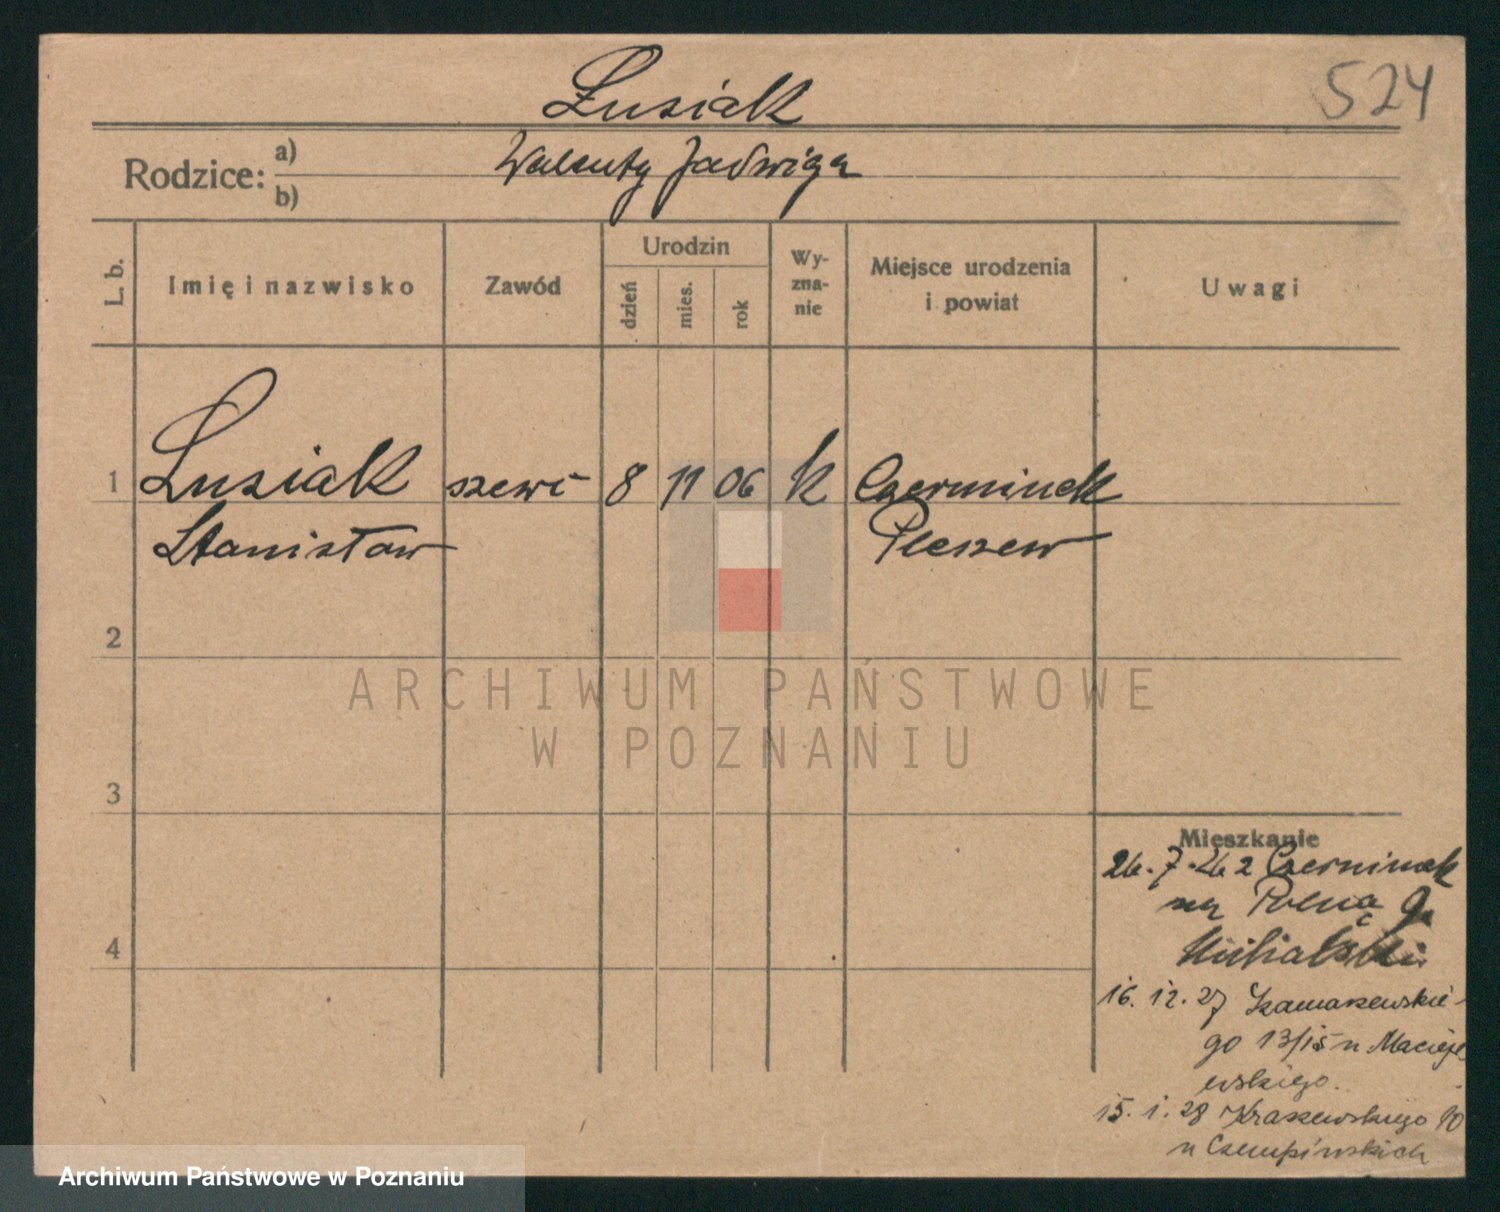 Łusiak
524
Rodzice: a) Walenty Jadwiga
b)
L. b.
Imię i nazwisko
Zawód
Urodzin
dzień
mies.
rok
Wy-
zna-
nie
Miejsce urodzenia
i powiat
Uwagi
1 Łusiak szewc 8 11 06 k Czerminek
Stanisław Pleszew
2
3
4
Mieszkanie
26. 7. 26 z Czerminek
na Polna 9
16. 12. 27 Szamarzewskie-
go 13/15 u Maciej
ewskiego.
15. 1. 28 Kraszewskiego 10
u Czempińskich
ARCHIWUM PAŃSTWOWE
W POZNANIU
Archiwum Państwowe w Poznaniu